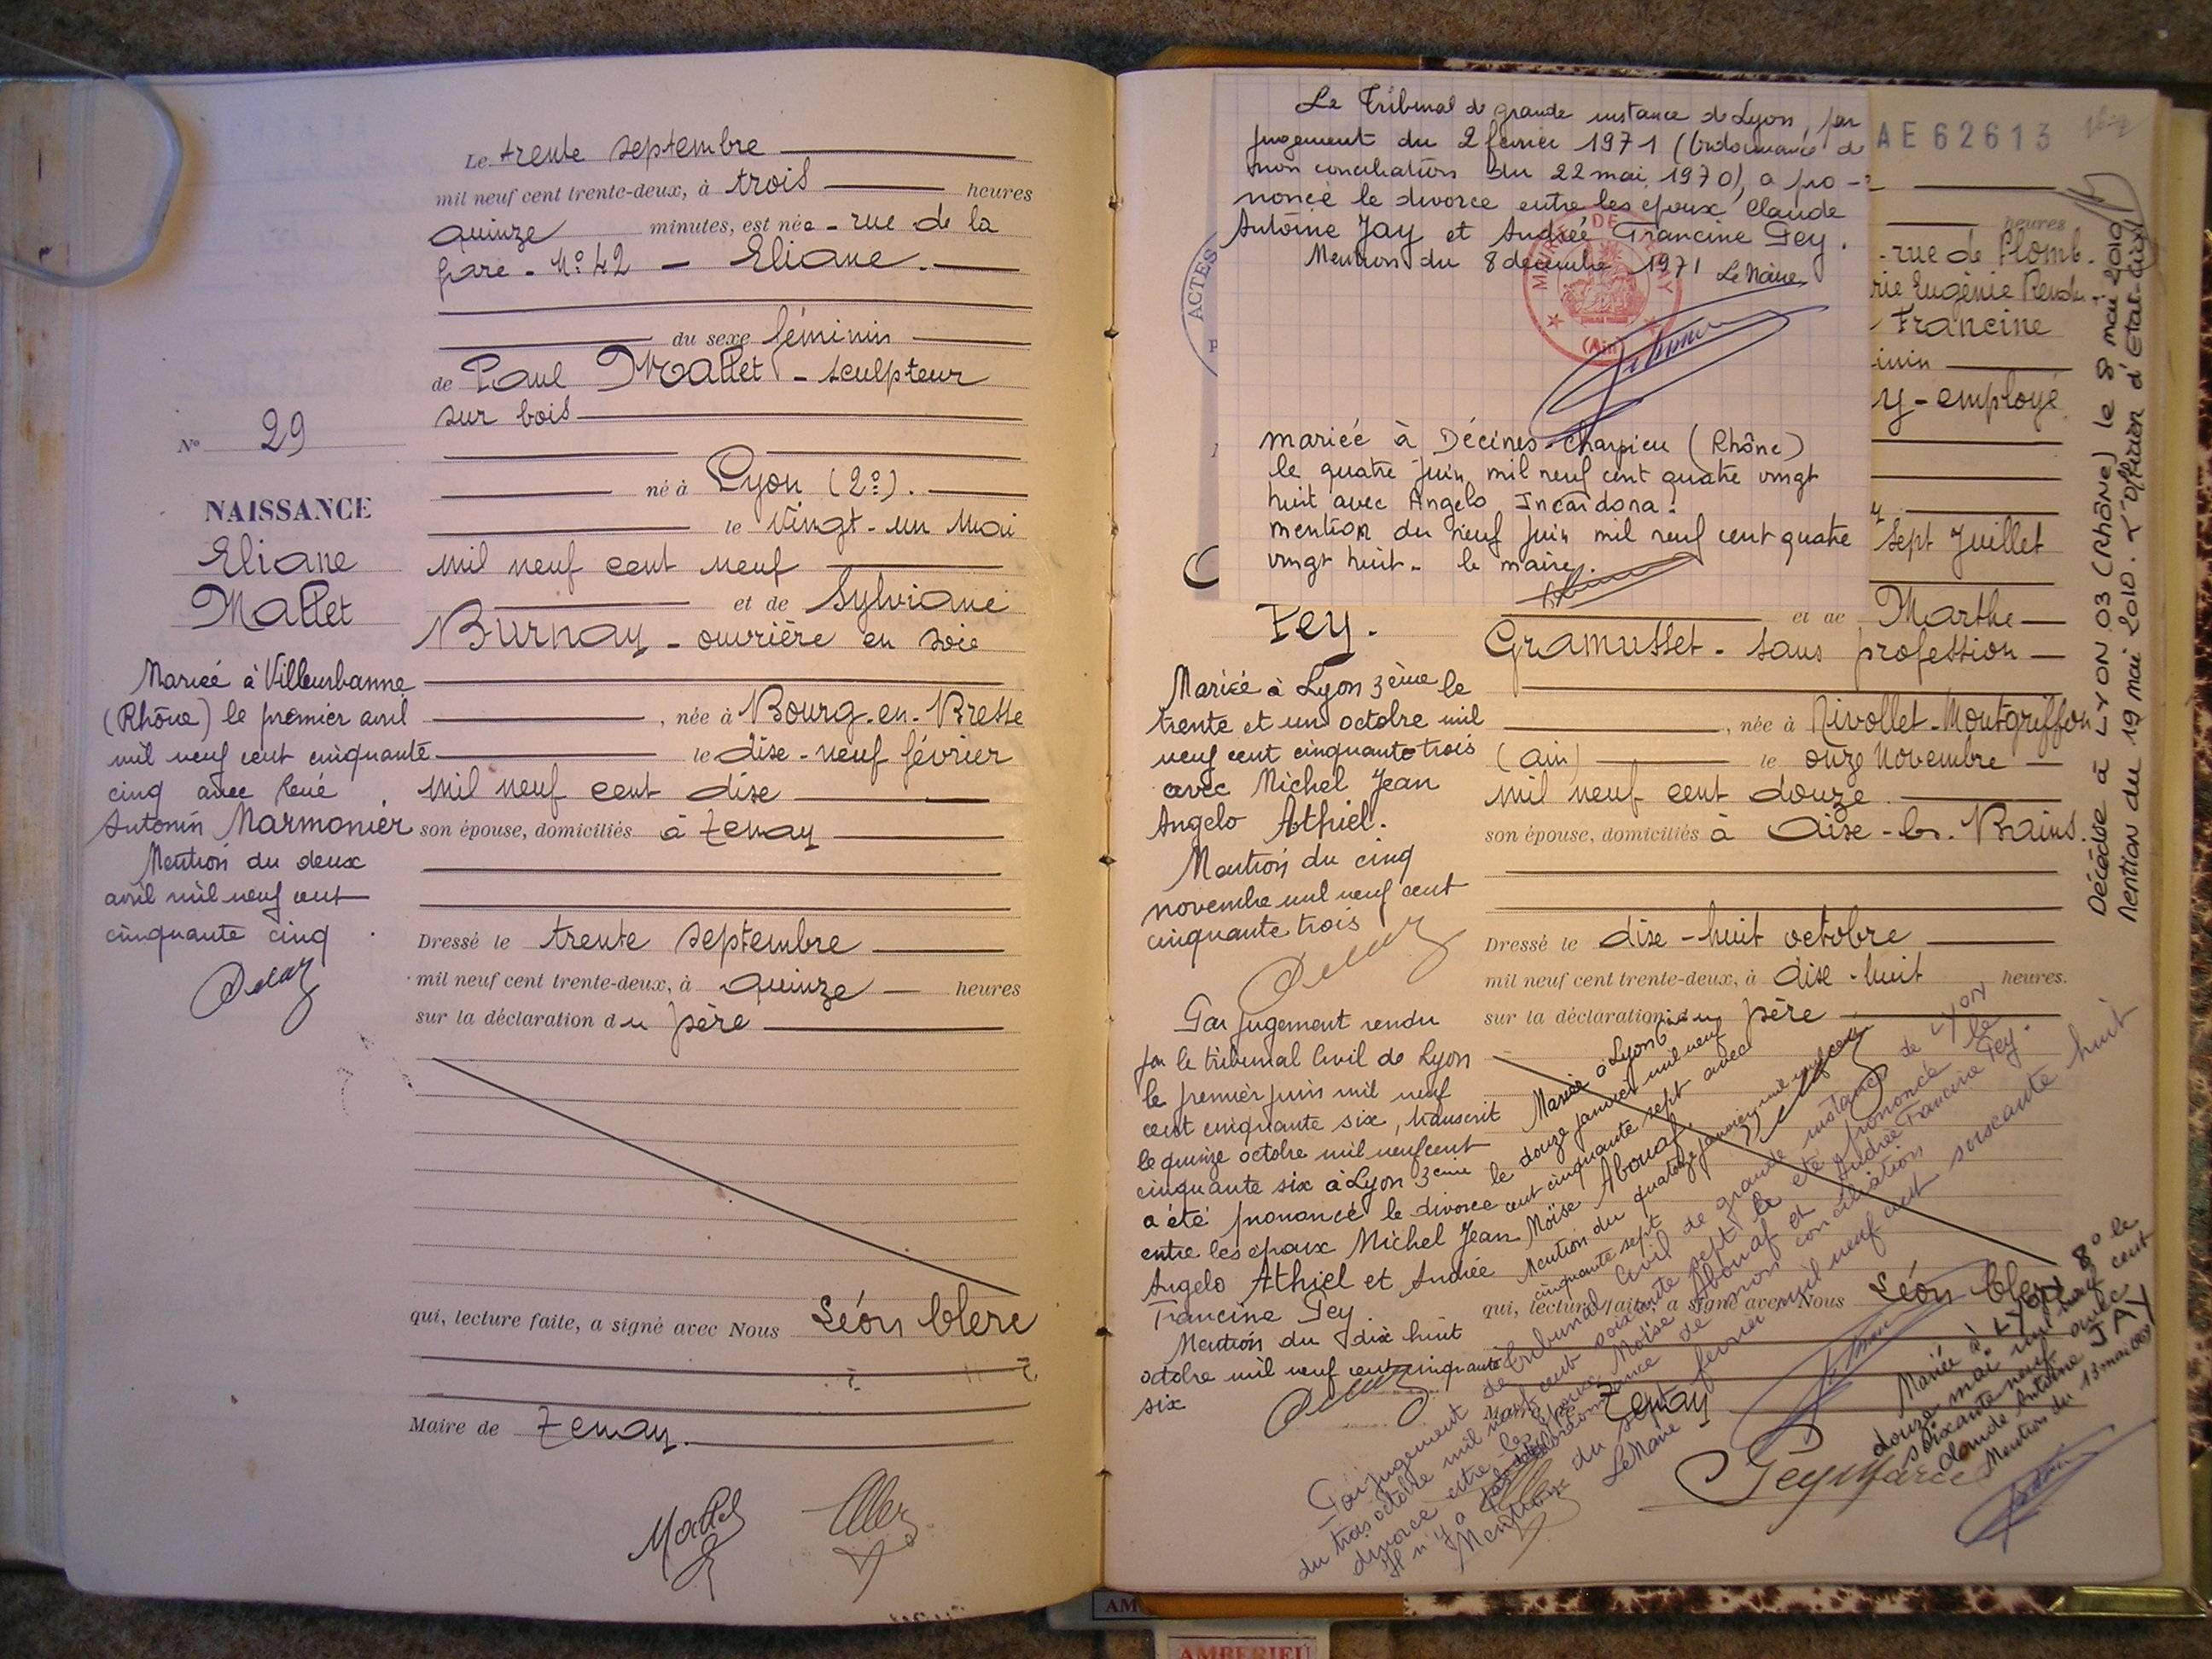 Le trente septembre
mil neuf cent trente-deux, à trois heures
quinze minutes, est née - rue de la
gare - N° 42 - Eliane.
du sexe féminin
de Paul Mallet - sculpteur
sur bois
né à Lyon (2e).
le vingt-un Mai
mil neuf cent neuf
et de Sylviane
Burnay - ouvrière en soie
, née à Bourg-en-Bresse
le dise-neuf février
mil neuf cent dise
son épouse, domiciliés à Tenay
Dressé le trente septembre
mil neuf cent trente-deux, à quinze heures
sur la déclaration du père
qui, lecture faite, a signé avec Nous Léon Clerc
Maire de Tenay.
N° 29
NAISSANCE
Eliane
Mallet
Mariée à Villeurbanne
(Rhône) le premier avril
mil neuf cent cinquante
cinq avec René
Antonin Marmonier
Mention du deux
avril mil neuf cent
cinquante cinq
Mallet
Le Tribunal de grande instance de Lyon, par
jugement du 2 février 1971 (Ordonnance de
non conciliation du 22 mai 1970), a pro-
noncé le divorce entre les époux Claude
Antoine Jay et Andrée Francine Fey.
Mention du 8 décembre 1971 Le Maire
MAIRIE DE TENAY
(Ain)
mariée à Décines-Charpieu (Rhône)
le quatre juin mil neuf cent quatre vingt
huit avec Angelo Incardona.
mention du neuf juin mil neuf cent quatre
vingt huit - le maire.
ACTES
AE 62613
heures
- rue de Plomb.
rie Eugénie
Francine
inin
y - employé
sept Juillet
et de Marthe
Gramusset - sans profession
, née à Nivollet-Montgriffon
(ain) le onze Novembre
mil neuf cent douze
son épouse, domiciliés à Aise-les-Bains.
Dressé le dise-huit octobre
mil neuf cent trente-deux, à dise-huit heures.
sur la déclaration du père
qui, lecture faite, a signé avec Nous Léon Clerc
Maire de Tenay
Fey Marce
Fey.
Mariée à Lyon 3ème le
trente et un octobre mil
neuf cent cinquante trois
avec Michel Jean
Angelo Athiel.
Mention du cinq
novembre mil neuf cent
cinquante trois
Par jugement rendu
par le tribunal Civil de Lyon
le premier juin mil neuf
cent cinquante six, transcrit
le quinze octobre mil neuf cent
cinquante six à Lyon 3ème
a été prononcé le divorce
entre les époux Michel Jean
Angelo Athiel et Andrée
Francine Fey
Mention du dix huit
octobre mil neuf cent cinquante
six
Mariée à Lyon 6
le douze janvier mil neuf
cent cinquante sept avec
Moïse Abouaf.
Mention du quatorze janvier mil neuf cent
cinquante sept
Par jugement de tribunal civil de grande instance de LYON
du trois octobre mil neuf cent soixante sept a été prononcé le
divorce entre les époux Moïse Abouaf et Andrée Francine Fey.
Il n'y a pas d'ordonnance de non conciliation
Mention du sept février mil neuf cent soixante huit
Le Maire
Mariée à LYON 8° le
douze mai mil neuf cent
soixante neuf avec
Claude Antoine JAY
Mention du 13 mai 1969
Décédée à LYON 03 (Rhône) le 8 mai 2010
Mention du 19 mai 2010. L'officier d'Etat-civil
AMBERIEU